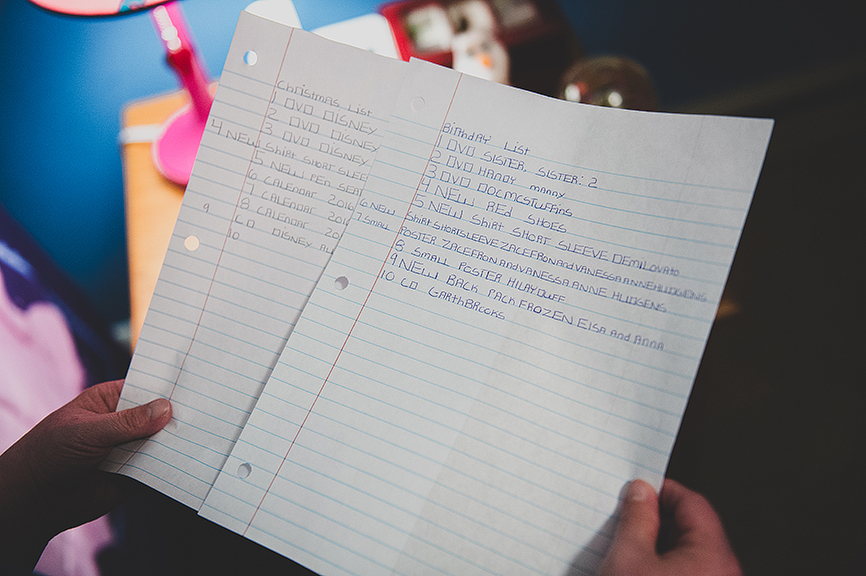 Christmas List
1 DVD DISNEY
2 DVD DISNEY
3 DVD DISNEY
4 NEW Shirt SHORT SLEE
5 NEW PEN SEAT
6 CALENDAR 2016
7 CALENDAR 2016
8 CALENDAR 20
9 CD DISNEY
10
BiRthdAY List
1 DVD SISTER, SISTER: 2
2 DVD HANDY MANNY
3 DVD DOCMCStuffins
4 NEW REd SHOES
5 NEW SHIRT SHORT SLEEVE DEMILOVATO
6 NEW ShirtSHORTSLEEVE ZACEFRON and VANESSA ANNE HUDGENS
7 Small POSTER ZACEFRON and VANESSA ANNE HUDGENS
8 Small POSTER HILAY DUFF
9 NEW BACK PACK FROZEN Elsa and Anna
10 CD GARthBRooks